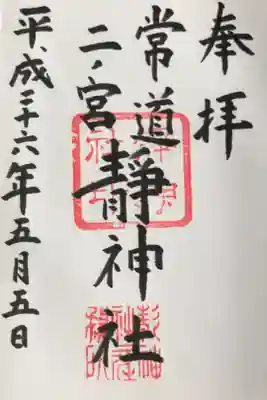 奉拝
常道二ノ宮
靜神社
平成二十六年五月五日